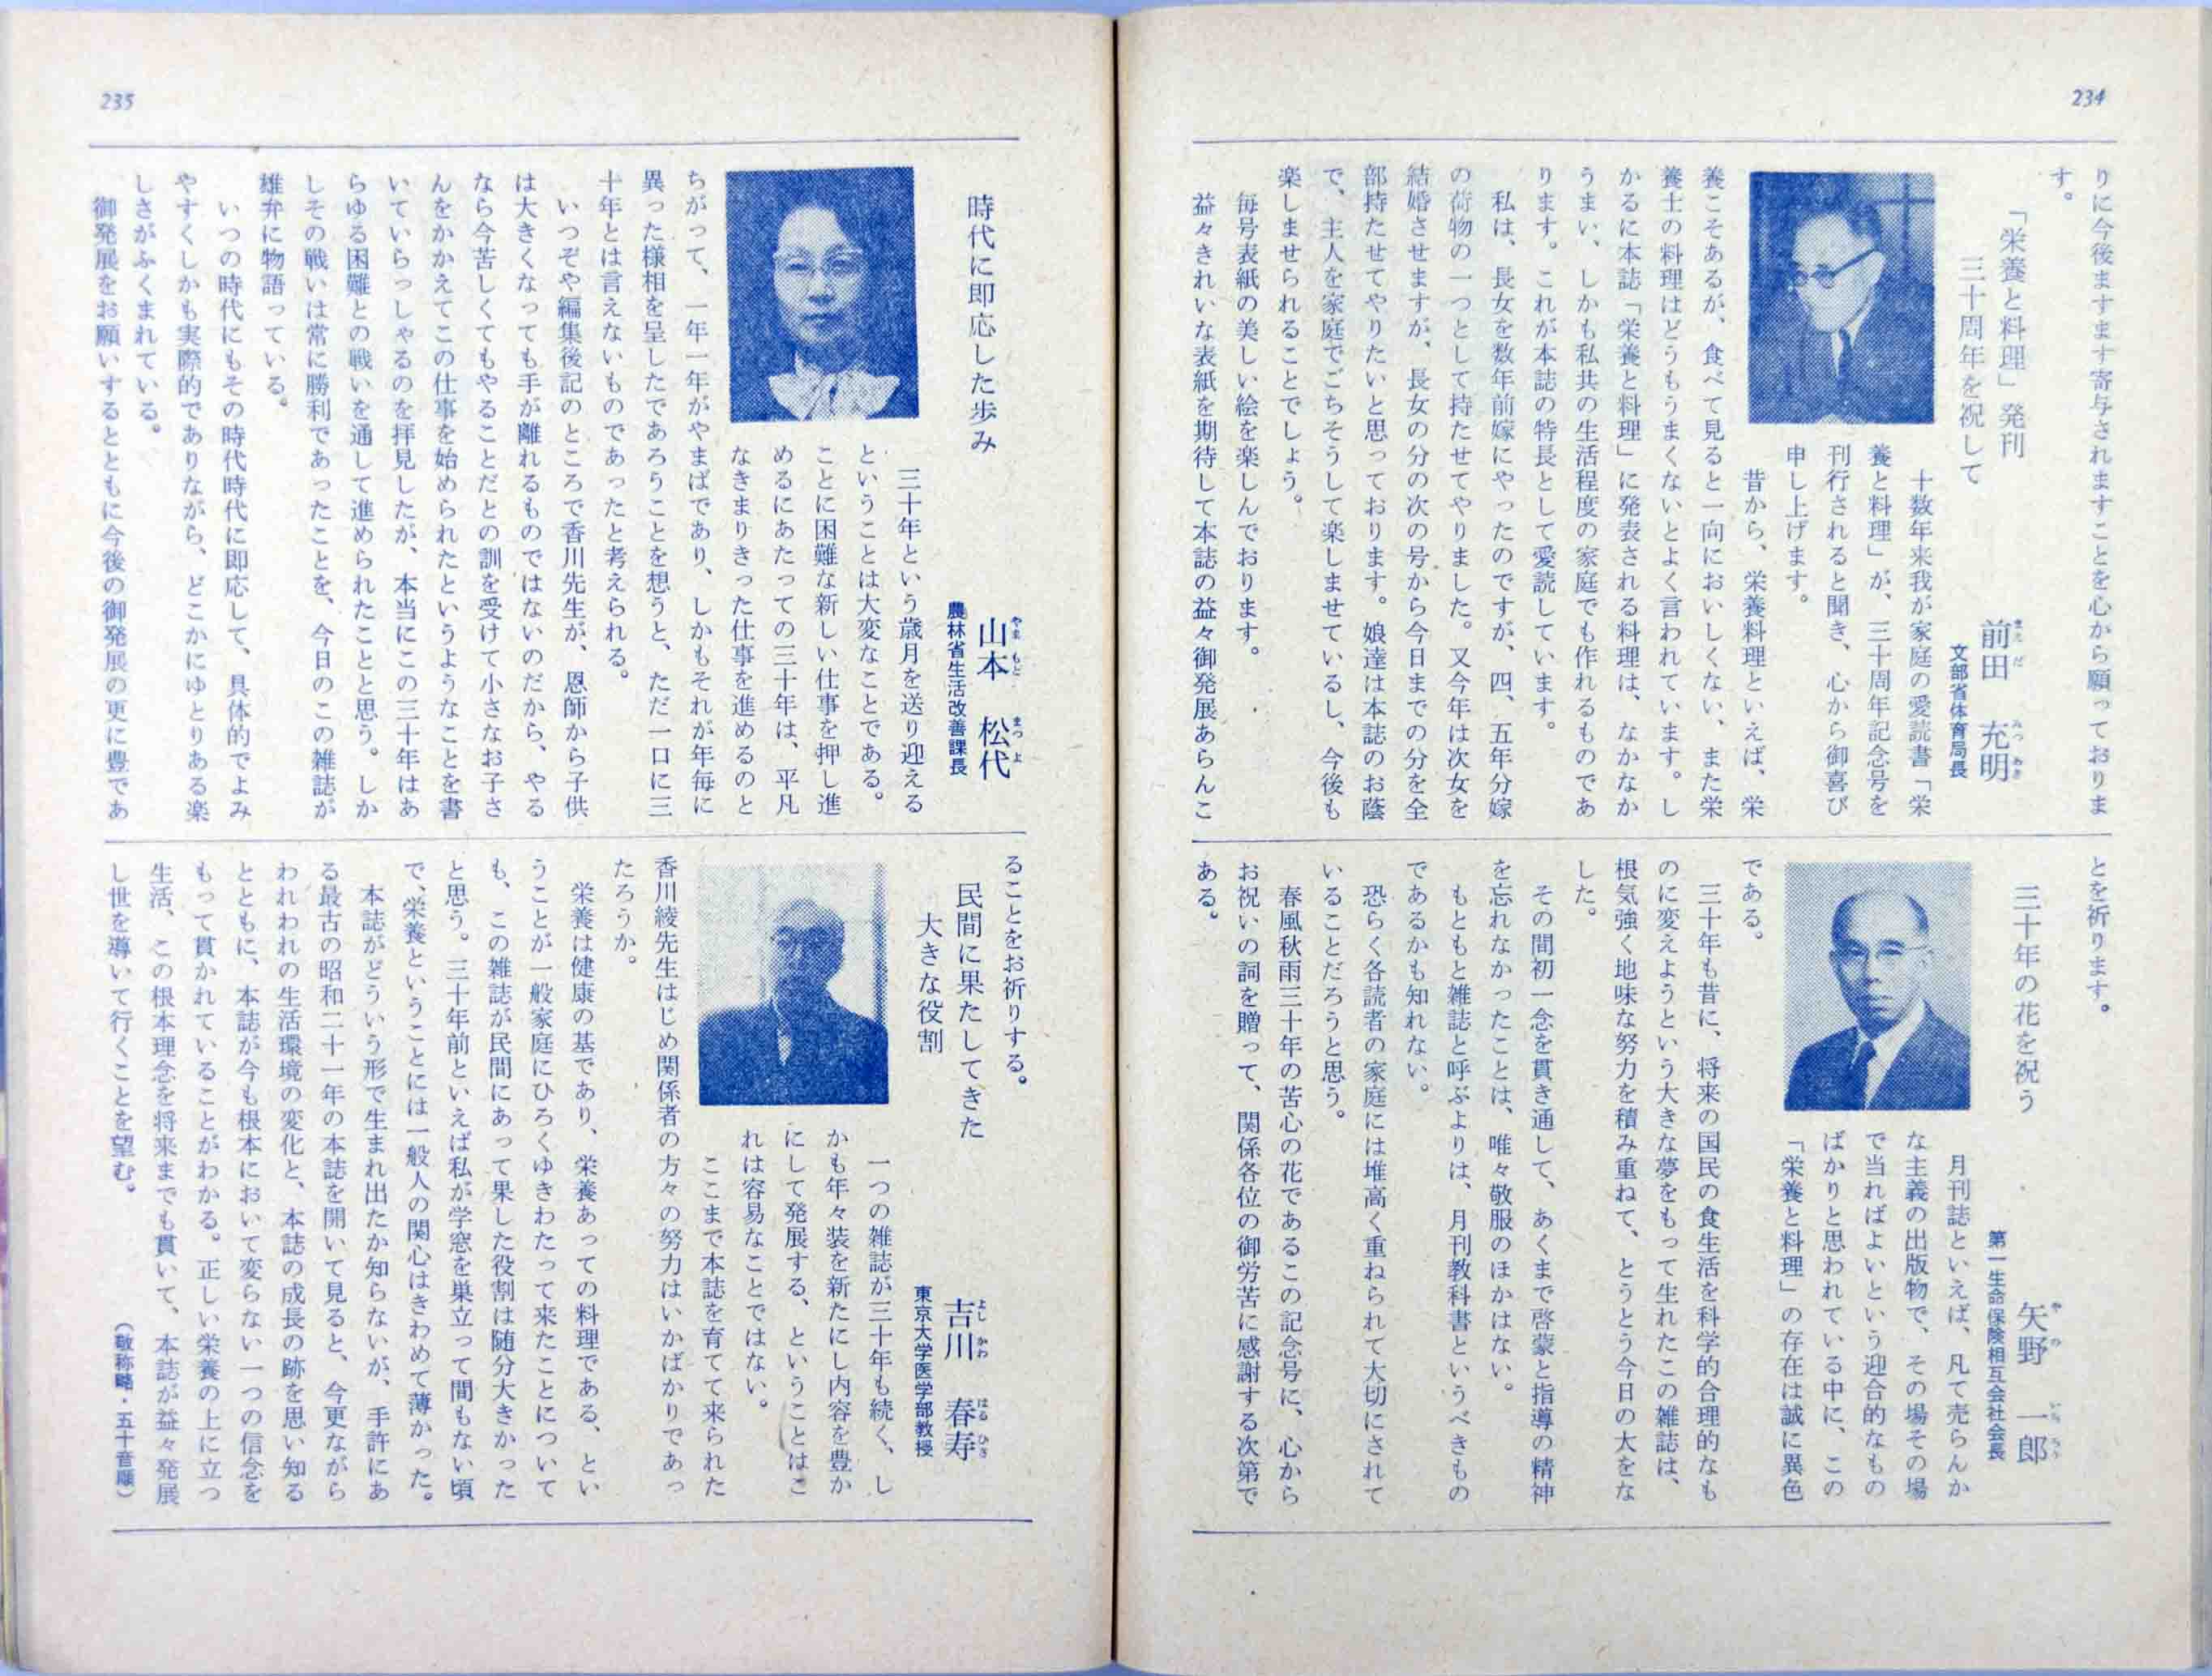 234
りに今後ますます寄与されますことを心から願っておりま
す。
「栄養と料理」発刊
三十周年を祝して
前田 充明
まえ だ みつ あき
文部省体育局長
十数年来我が家庭の愛読書「栄
養と料理」が、三十周年記念号を
刊行されると聞き、心から御喜び
申し上げます。
昔から、栄養料理といえば、栄
養こそあるが、食べて見ると一向においしくない、また栄
養士の料理はどうもうまくないとよく言われています。し
かるに本誌「栄養と料理」に発表される料理は、なかなか
うまい、しかも私共の生活程度の家庭でも作れるものであ
ります。これが本誌の特長として愛読しています。
私は、長女を数年前嫁にやったのですが、四、五年分嫁
の荷物の一つとして持たせてやりました。又今年は次女を
結婚させますが、長女の分の次の号から今日までの分を全
部持たせてやりたいと思っております。娘達は本誌のお蔭
で、主人を家庭でごちそうして楽しませているし、今後も
楽しませられることでしょう。
毎号表紙の美しい絵を楽しんでおります。
益々きれいな表紙を期待して本誌の益々御発展あらんこ
とを祈ります。
三十年の花を祝う
矢野 一郎
や の いち ろう
第一生命保険相互会社会長
月刊誌といえば、凡て売らんか
な主義の出版物で、その場その場
で当ればよいという迎合的なもの
ばかりと思われている中に、この
「栄養と料理」の存在は誠に異色
である。
三十年も昔に、将来の国民の食生活を科学的合理的なも
のに変えようという大きな夢をもって生れたこの雑誌は、
根気強く地味な努力を積み重ねて、とうとう今日の大をな
した。
その間初一念を貫き通して、あくまで啓蒙と指導の精神
を忘れなかったことは、唯々敬服のほかはない。
もともと雑誌と呼ぶよりは、月刊教科書というべきもの
であるかも知れない。
恐らく各読者の家庭には堆高く重ねられて大切にされて
いることだろうと思う。
春風秋雨三十年の苦心の花であるこの記念号に、心から
お祝いの詞を贈って、関係各位の御労苦に感謝する次第で
ある。
235
時代に即応した歩み
山本 松代
やま もと まつ よ
農林省生活改善課長
三十年という歳月を送り迎える
ということは大変なことである。
ことに困難な新しい仕事を押し進
めるにあたっての三十年は、平凡
なきまりきった仕事を進めるのと
ちがって、一年一年がやまばであり、しかもそれが年毎に
異った様相を呈したであろうことを想うと、ただ一口に三
十年とは言えないものであったと考えられる。
いつぞや編集後記のところで香川先生が、恩師から子供
は大きくなっても手が離れるものではないのだから、やる
なら今苦しくてもやることだとの訓を受けて小さなお子さ
んをかかえてこの仕事を始められたというようなことを書
いていらっしゃるのを拝見したが、本当にこの三十年はあ
らゆる困難との戦いを通して進められたことと思う。しか
しその戦いは常に勝利であったことを、今日のこの雑誌が
雄弁に物語っている。
いつの時代にもその時代時代に即応して、具体的でよみ
やすくしかも実際的でありながら、どこかにゆとりある楽
しさがふくまれている。
御発展をお願いするとともに今後の御発展の更に豊であ
ることをお祈りする。
民間に果たしてきた
大きな役割
吉川 春寿
よし かわ はる ひさ
東京大学医学部教授
一つの雑誌が三十年も続く、し
かも年々装を新たにし内容を豊か
にして発展する、ということはこ
れは容易なことではない。
ここまで本誌を育てて来られた
香川綾先生はじめ関係者の方々の努力はいかばかりであっ
たろうか。
栄養は健康の基であり、栄養あっての料理である、とい
うことが一般家庭にひろくゆきわたって来たことについて
も、この雑誌が民間にあって果した役割は随分大きかった
と思う。三十年前といえば私が学窓を巣立って間もない頃
で、栄養ということには一般人の関心はきわめて薄かった。
本誌がどういう形で生まれ出たか知らないが、手許にあ
る最古の昭和二十一年の本誌を開いて見ると、今更ながら
われわれの生活環境の変化と、本誌の成長の跡を思い知る
とともに、本誌が今も根本において変らない一つの信念を
もって貫かれていることがわかる。正しい栄養の上に立つ
生活、この根本理念を将来までも貫いて、本誌が益々発展
し世を導いて行くことを望む。
（敬称略・五十音順）